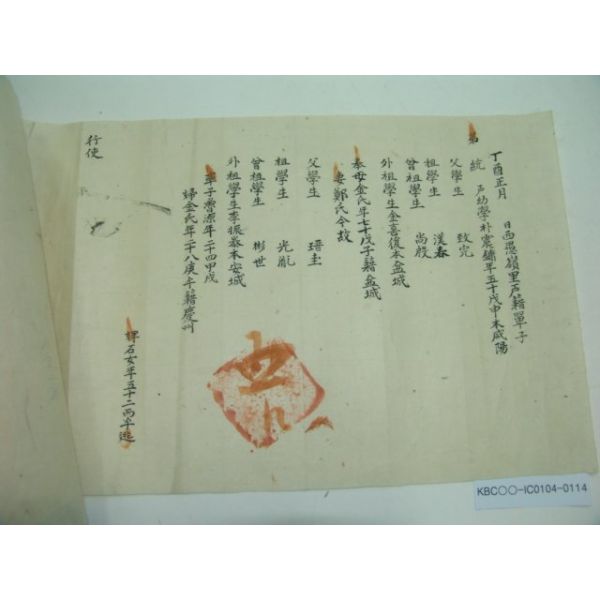 丁酉正月 日西愚嶺里戶籍單子
第 統 戶幼學朴震鏞年五十戊申本咸陽
父學生 致完
祖學生 漢春
曾祖學生 尚殷
外祖學生金喜復本盆城
奉母金氏年七十戊子籍盆城
妻鄭氏今故
父學生 圭
祖學生 光胤
曾祖學生 彬世
外祖學生李振泰本安城
率子魯 年二十四甲戌
婦金氏年二十八庚午籍慶州
婢石女年五十二丙午逃
行使
KBC○○-IC0104-0114